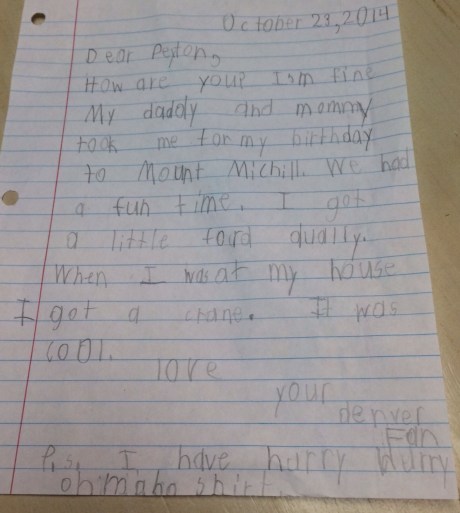 October 23, 2014
Dear Peyton,
How are you? I'm fine
My daddy and mommy
took me for my birthday
to Mount Michill. We had
a fun time. I got
a little ford dually.
When I was at my house
I got a crane. It was
cool.
love
your
denver
Fan
P.s. I have hurry hurry
oh maha shirt.